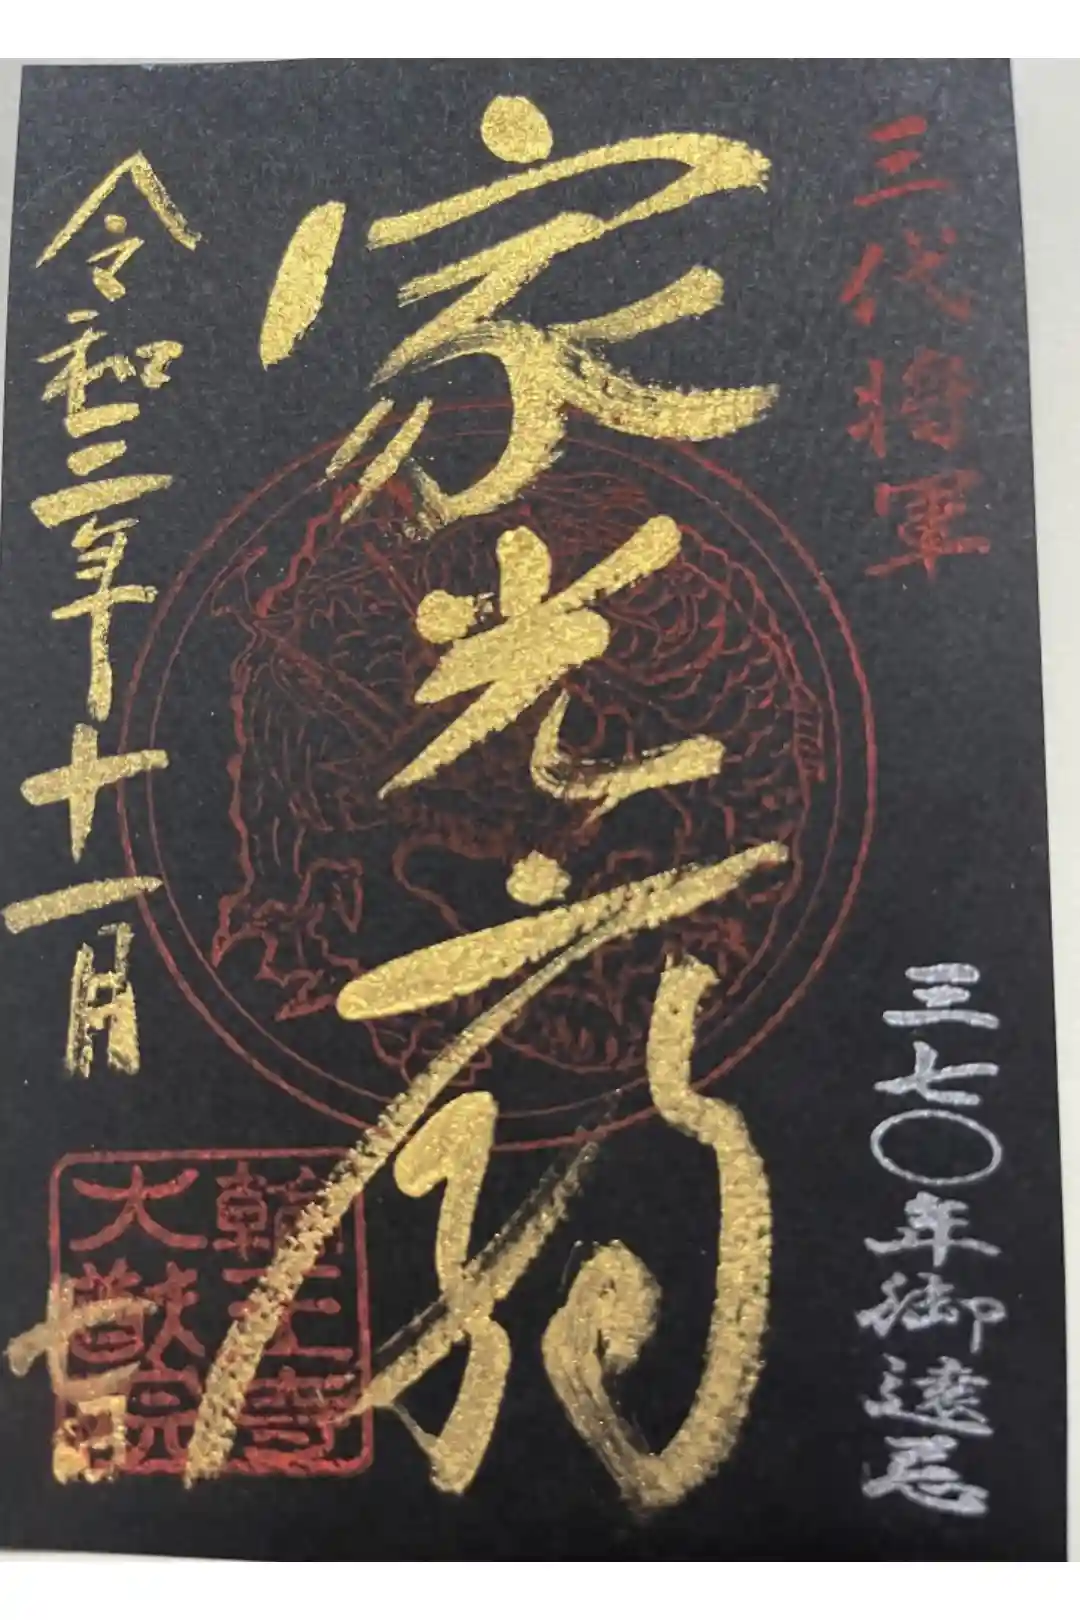 三代将軍
三七〇年御遠忌
家光廟
令和三年十一月
七日
輪王寺
大猷院